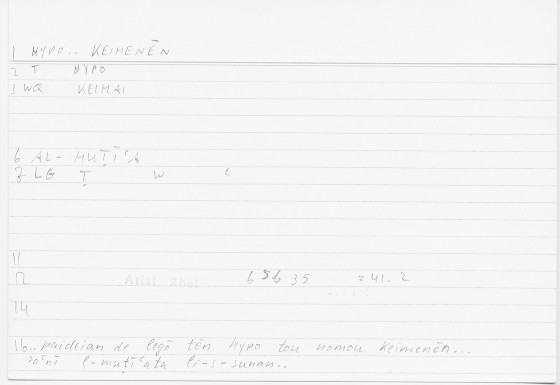 1 HYPO.. KEIMENĒN
2 T HYPO
3 WQ KEIMAI
6 AL-MUṬĪʿA
7 LG Ṭ W ʿ
11
12 Arist. Rhet. 6 5b 35 = 41.2
14
16.. paideian de legō tēn hypo tou nomou keimenēn...
ʾaʿnī l-muṭīʿata li-s-sunan..